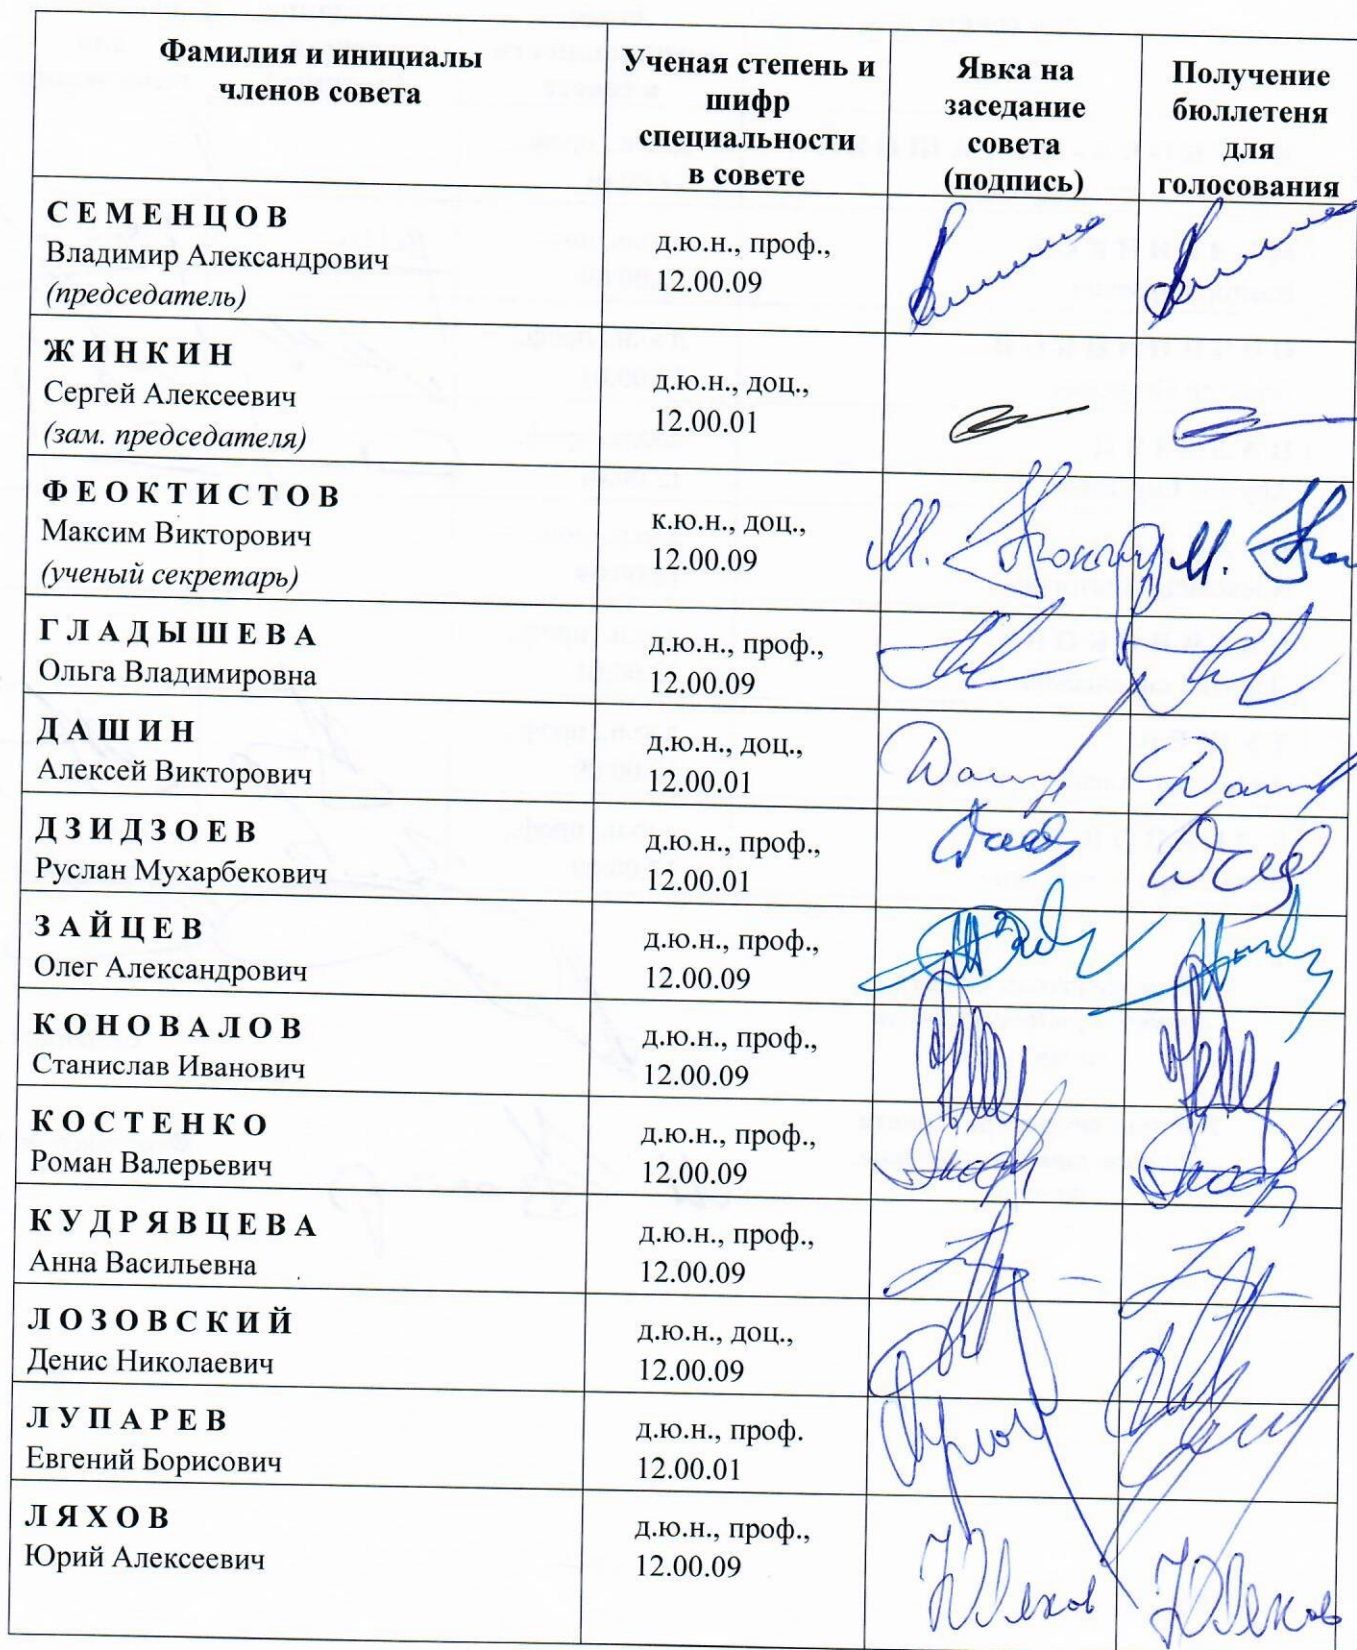 Фамилия и инициалы
членов совета
Ученая степень и
шифр
специальности
в совете
Явка на
заседание
совета
(подпись)
Получение
бюллетеня
для
голосования
СЕМЕНЦОВ
Владимир Александрович
(председатель)
д.ю.н., проф.,
12.00.09
ЖИНКИН
Сергей Алексеевич
(зам. председателя)
д.ю.н., доц.,
12.00.01
ФЕОКТИСТОВ
Максим Викторович
(ученый секретарь)
к.ю.н., доц.,
12.00.09
ГЛАДЫШЕВА
Ольга Владимировна
д.ю.н., проф.,
12.00.09
ДАШИН
Алексей Викторович
д.ю.н., доц.,
12.00.01
ДЗИДЗОЕВ
Руслан Мухарбекович
д.ю.н., проф.,
12.00.01
ЗАЙЦЕВ
Олег Александрович
д.ю.н., проф.,
12.00.09
КОНОВАЛОВ
Станислав Иванович
д.ю.н., проф.,
12.00.09
КОСТЕНКО
Роман Валерьевич
д.ю.н., проф.,
12.00.09
КУДРЯВЦЕВА
Анна Васильевна
д.ю.н., проф.,
12.00.09
ЛОЗОВСКИЙ
Денис Николаевич
д.ю.н., доц.,
12.00.09
ЛУПАРЕВ
Евгений Борисович
д.ю.н., проф.
12.00.01
ЛЯХОВ
Юрий Алексеевич
д.ю.н., проф.,
12.00.09